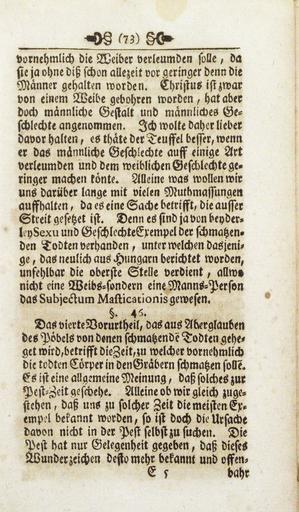 (73)
vornehmlich die Weiber verleumden solle, da
sie ja ohne diß schon allezeit vor geringer denn die
Männer gehalten worden. Christus ist zwar
von einem Weibe gebohren worden, hat aber
doch männliche Gestalt und männliches Ge-
schlechte angenommen. Ich wolte daher lieber
davor halten, es thäte der Teuffel besser, wenn
er das männliche Geschlechte auff einige Art
verleumden und dem weiblichen Geschlechte ge-
ringer machen könte. Alleine was wollen wir
uns darüber lange mit vielen Muthmassungen
auffhalten, da es eine Sache betrifft, die ausser
Streit gesetzt ist. Denn es sind ja von beyder-
ley Sexu und Geschlechte Exempel der schmatzen-
den Todten verhanden, unter welchen dasjeni-
ge, das neulich aus Hungarn berichtet worden,
unfehlbar die oberste Stelle verdient, allwo
nicht eine Weibs- sondern eine Manns-Person
das Subjectum Masticationis gewesen.
§. 46.
Das vierte Vorurtheil, das aus Aberglauben
des Pöbels von denen schmatzende Todten gehe-
get wird, betrifft die Zeit, zu welcher vornehmlich
die todten Cörper in den Gräbern schmatzen solle.
Es ist eine allgemeine Meinung, daß solches zur
Pest-Zeit geschehe. Alleine ob wir gleich zuge-
stehen, daß uns zu solcher Zeit die meisten Ex-
empel bekannt worden, so ist doch die Ursache
davon nicht in der Pest selbst zu suchen. Die
Pest hat nur Gelegenheit gegeben, daß dieses
Wunderzeichen desto mehr bekannt und offen-
E 5 bahr